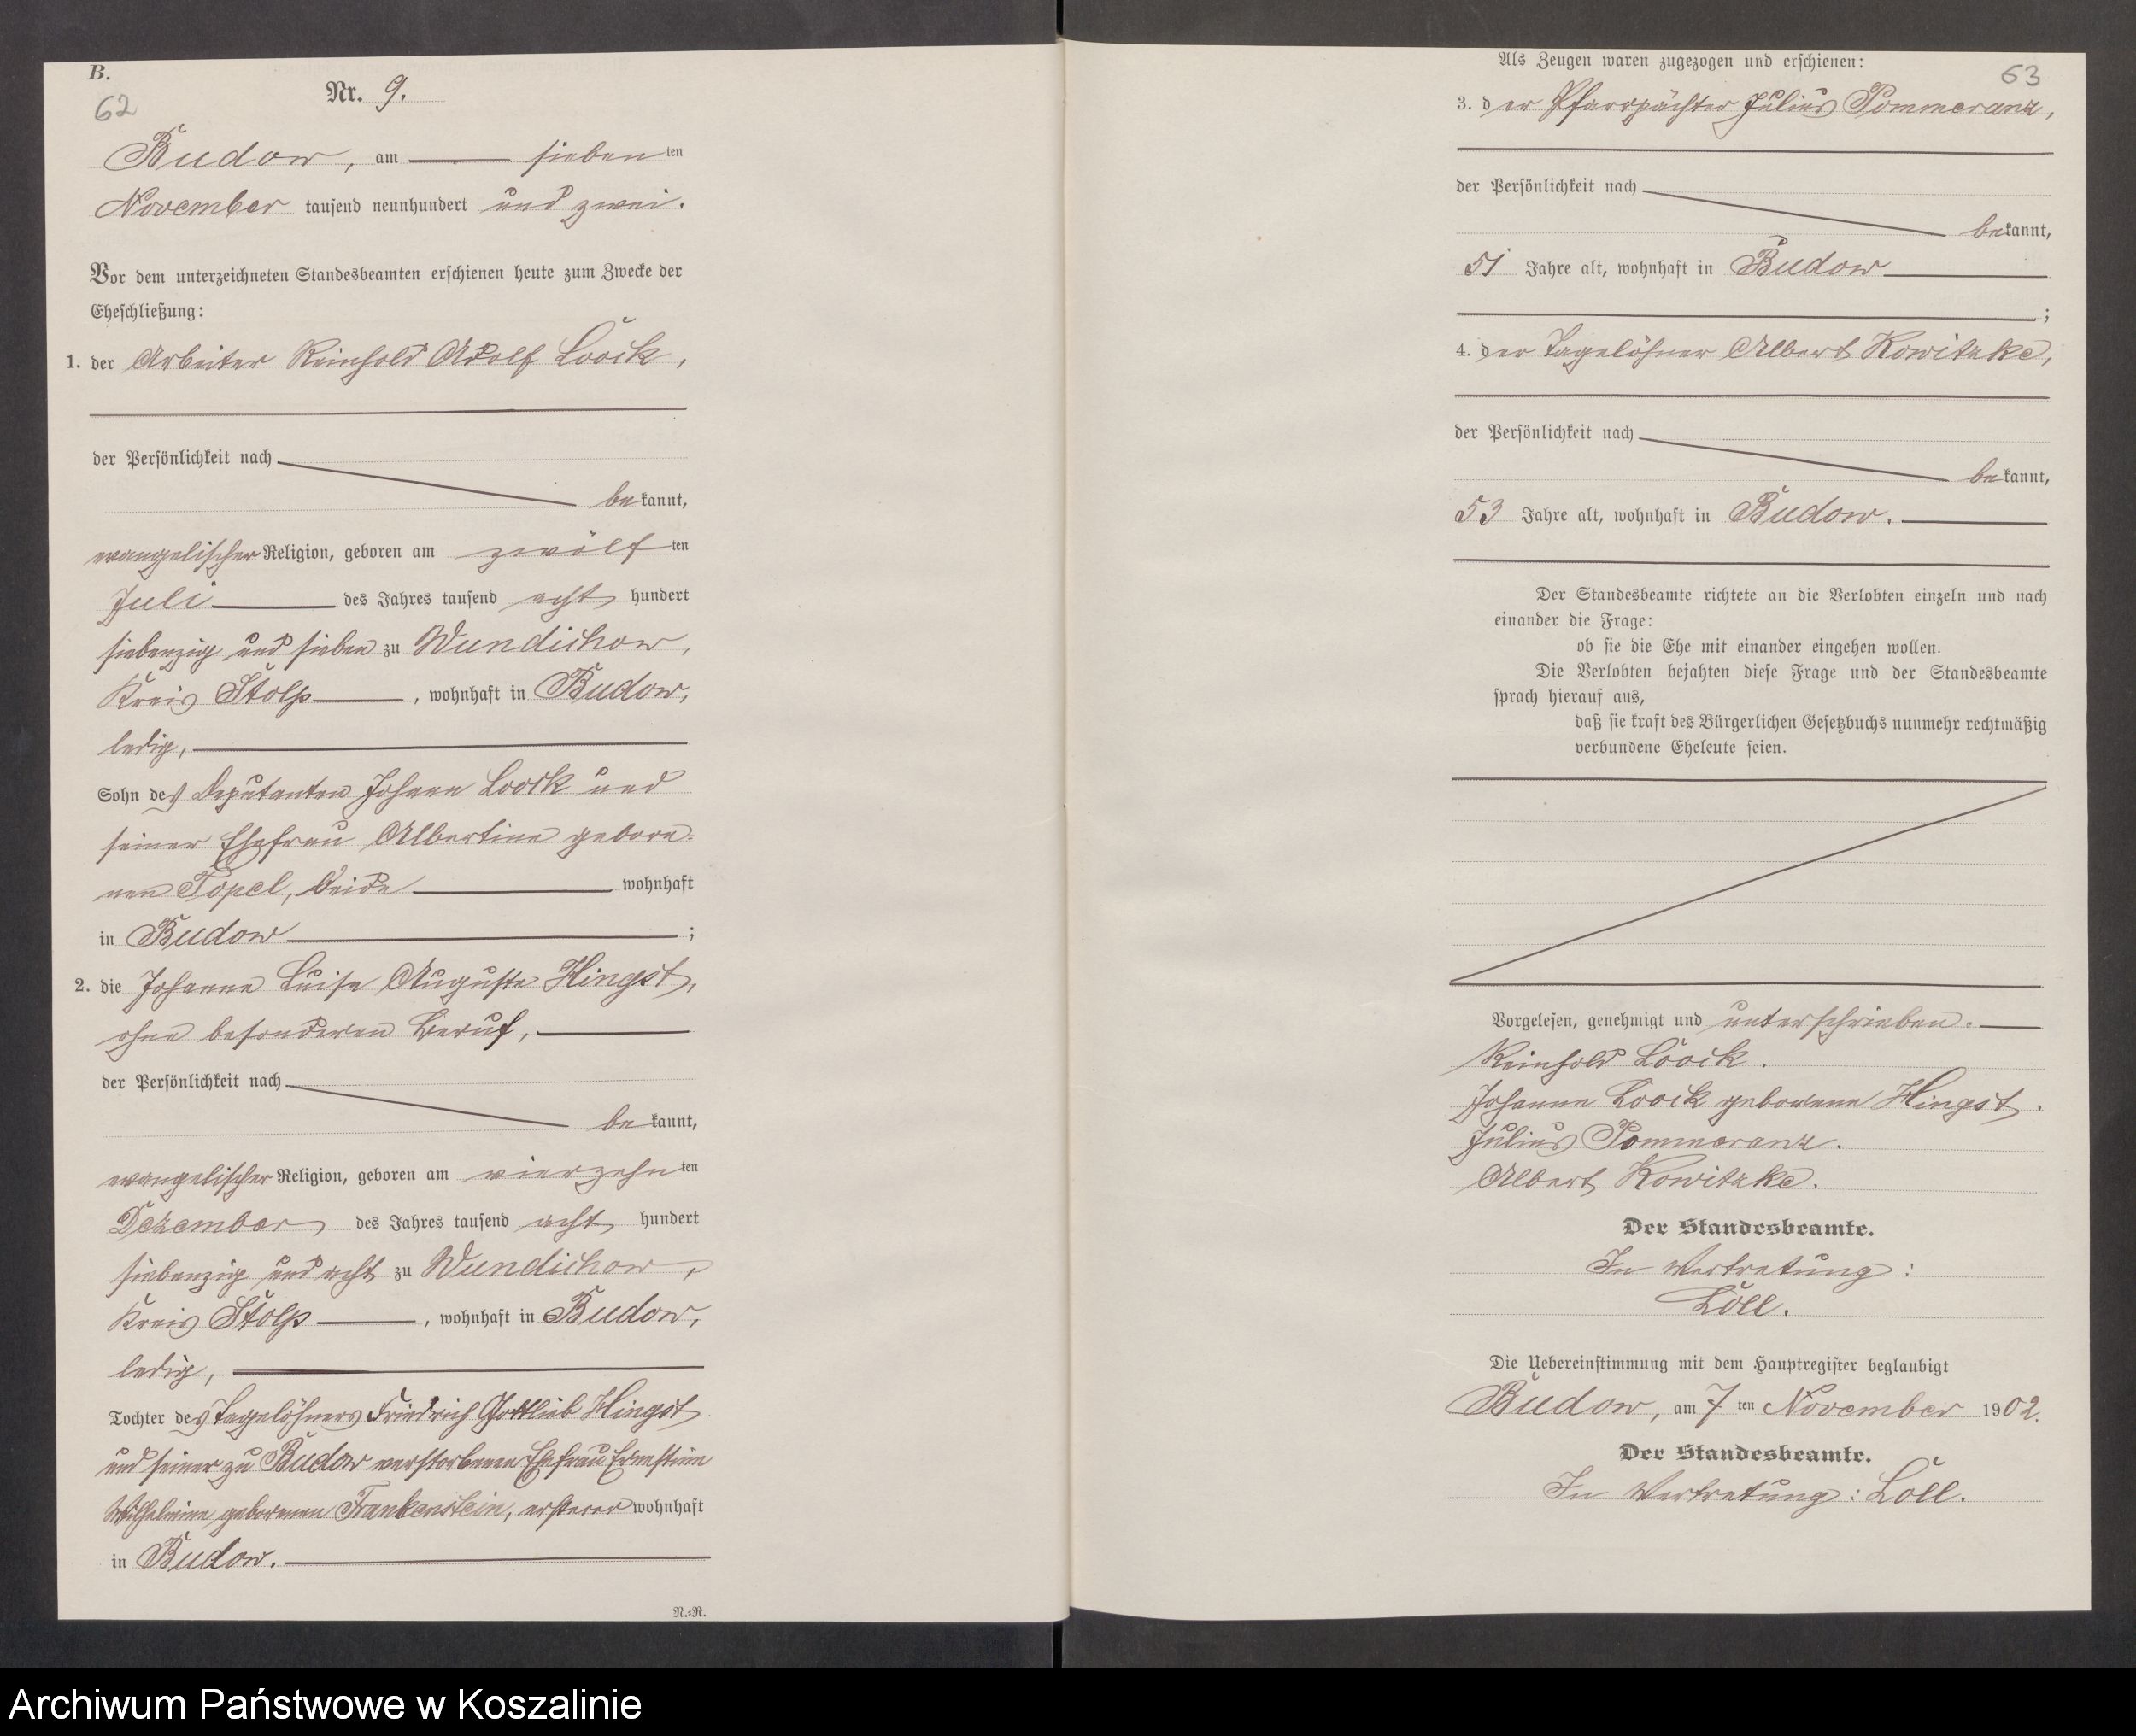 B.
62
Nr. 9.
Budow, am siebenten
November tausend neunhundert und zwei.
Vor dem unterzeichneten Standesbeamten erschienen heute zum Zwecke der
Eheschließung:
1. der Arbeiter Reinhold Adolf Loock,
der Persönlichkeit nach
bekannt,
evangelischer Religion, geboren am zwölften
Juli des Jahres tausend acht hundert
siebenzig und sieben zu Wundichow,
Kreis Stolp, wohnhaft in Budow,
ledig,
Sohn des Deputanten Johann Loock und
seiner Ehefrau Albertine gebore-
nen Topel, beide wohnhaft
in Budow;
2. die Johanne Luise Auguste Hingst,
ohne besonderen Beruf,
der Persönlichkeit nach
bekannt,
evangelischer Religion, geboren am vierzehnten
Dezember des Jahres tausend acht hundert
siebenzig und acht zu Wundichow,
Kreis Stolp, wohnhaft in Budow,
ledig,
Tochter des Tagelöhners Friedrich Gottlieb Hingst
und seiner zu Budow verstorbenen Ehefrau Ernestine
Wilhelmine geborenen Frankenstein, ersterer wohnhaft
in Budow.
N.=N.
Als Zeugen waren zugezogen und erschienen:
63
3. der Pfarrpächter Julius Pommeranz,
der Persönlichkeit nach
bekannt,
51 Jahre alt, wohnhaft in Budow
;
4. der Tagelöhner Albert Kowitzke,
der Persönlichkeit nach
bekannt,
53 Jahre alt, wohnhaft in Budow.
Der Standesbeamte richtete an die Verlobten einzeln und nach
einander die Frage:
ob sie die Ehe mit einander eingehen wollen.
Die Verlobten bejahten diese Frage und der Standesbeamte
sprach hierauf aus,
daß sie kraft des Bürgerlichen Gesetzbuchs nunmehr rechtmäßig
verbundene Eheleute seien.
Vorgelesen, genehmigt und unterschrieben.
Reinhold Loock.
Johanne Loock geborene Hingst.
Julius Pommeranz.
Albert Kowitzke.
Der Standesbeamte.
In Vertretung:
Löll.
Die Uebereinstimmung mit dem Hauptregister beglaubigt
Budow, am 7ten November 1902.
Der Standesbeamte.
In Vertretung: Löll.
Archiwum Państwowe w Koszalinie